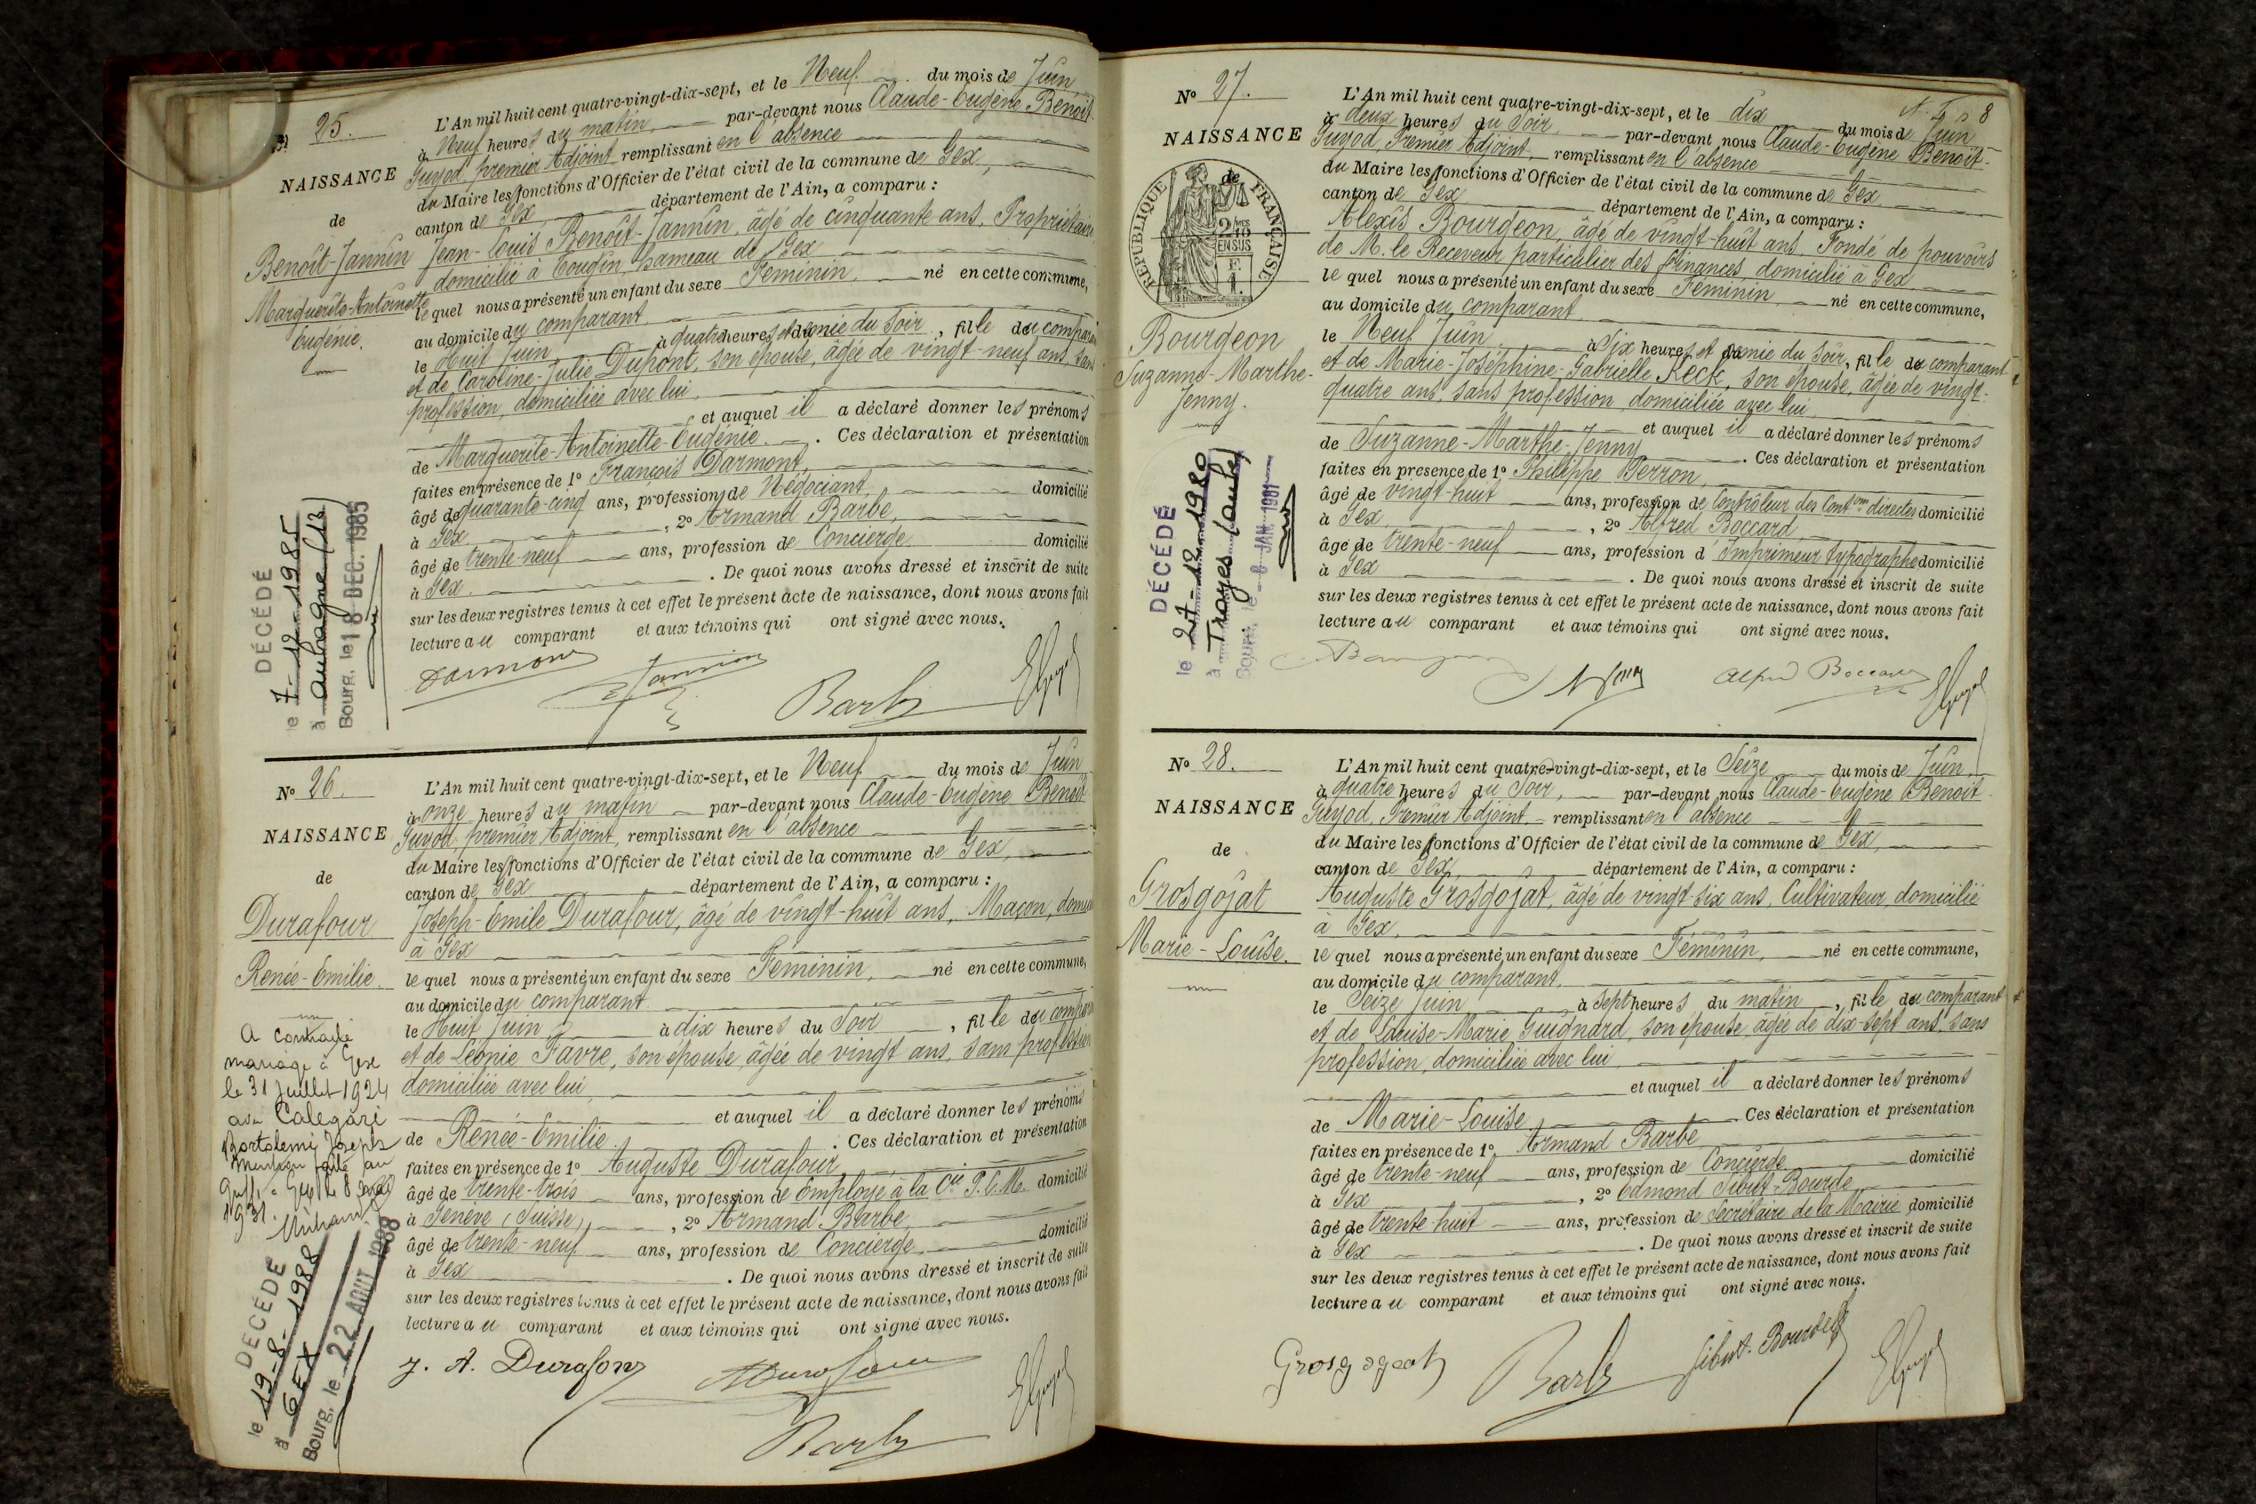 N° 25.
NAISSANCE
de
Benoît-Jannin
Marguerite-Antoinette
Eugénie.
L'An mil huit cent quatre-vingt-dix-sept, et le Neuf du mois de Juin
à Neuf heures du matin, par-devant nous Claude-Eugène Benoît-
Guyod, premier Adjoint, remplissant en l'absence
du Maire les fonctions d'Officier de l'état civil de la commune de Gex,
canton de Gex département de l'Ain, a comparu :
Jean-Louis Benoît-Jannin, âgé de cinquante ans, Propriétaire
domicilié à Tougin, hameau de Gex
le quel nous a présenté un enfant du sexe Féminin, né en cette commune,
au domicile du comparant
le Huit Juin à quatre heures et demie du soir, fille du comparant
et de Caroline-Julie Dupont, son épouse, âgée de vingt-neuf ans, sans
profession, domiciliée avec lui,
et auquel il a déclaré donner les prénoms
de Marguerite-Antoinette-Eugénie. Ces déclaration et présentation
faites en présence de 1° François Darmont,
âgé de quarante-cinq ans, profession de Négociant, domicilié
à Gex, 2° Armand Barbe,
âgé de trente-neuf ans, profession de Concierge domicilié
à Gex. De quoi nous avons dressé et inscrit de suite
sur les deux registres tenus à cet effet le présent acte de naissance, dont nous avons fait
lecture au comparant et aux témoins qui ont signé avec nous.
DÉCÉDÉ
le 7-12-1985
à aubagne (13)
Bourg, le 18 DEC. 1985
Darmont Jannin Barbe EGuyod
N° 26.
NAISSANCE
de
Durafour
Renée-Emilie
L'An mil huit cent quatre-vingt-dix-sept, et le Neuf du mois de Juin
à onze heures du matin par-devant nous Claude-Eugène Benoît
Guyod, premier Adjoint, remplissant en l'absence
du Maire les fonctions d'Officier de l'état civil de la commune de Gex,
canton de Gex département de l'Ain, a comparu :
Joseph-Emile Durafour, âgé de vingt-huit ans, Maçon, domicilié
à Gex
le quel nous a présenté un enfant du sexe Féminin, né en cette commune,
au domicile du comparant
le Huit Juin à dix heures du Soir, fille du comparant
et de Léonie Favre, son épouse, âgée de vingt ans, sans profession
domiciliée avec lui,
et auquel il a déclaré donner les prénoms
de Renée-Emilie. Ces déclaration et présentation
faites en présence de 1° Auguste Durafour,
âgé de trente-trois ans, profession de Employé à la Cie P.L.M. domicilié
à Genève (Suisse), 2° Armand Barbe,
âgé de trente-neuf ans, profession de Concierge domicilié
à Gex. De quoi nous avons dressé et inscrit de suite
sur les deux registres tenus à cet effet le présent acte de naissance, dont nous avons fait
lecture au comparant et aux témoins qui ont signé avec nous.
A contracté
mariage à Gex
le 31 Juillet 1924
avec Calegari
Bortolemi Joseph
Mention faite au
1931.
DÉCÉDÉ
le 19-8-1988
à GEX
Bourg, le 22 AOUT 1988
J. A. Durafour ADurafour EGuyod
Barbe
8
N° 27.
NAISSANCE
de
RÉPUBLIQUE FRANÇAISE
2/10es
EN SUS
Bourgeon
Suzanne-Marthe-
Jenny.
L'An mil huit cent quatre-vingt-dix-sept, et le dix du mois de Juin
à deux heures du Soir, par-devant nous Claude-Eugène Benoît-
Guyod, Premier Adjoint, remplissant en l'absence
du Maire les fonctions d'Officier de l'état civil de la commune de Gex
canton de Gex département de l'Ain, a comparu :
Alexis Bourgeon, âgé de vingt-huit ans, Fondé de pouvoirs
de M. le Receveur particulier des finances, domicilié à Gex
le quel nous a présenté un enfant du sexe Féminin, né en cette commune,
au domicile du comparant
le Neuf Juin à Six heures et demie du Soir, fille du comparant
et de Marie-Joséphine-Gabrielle Keck, son épouse, âgée de vingt-
quatre ans, sans profession, domiciliée avec lui
et auquel il a déclaré donner les prénoms
de Suzanne-Marthe-Jenny. Ces déclaration et présentation
faites en présence de 1° Philippe Perron,
âgé de vingt-huit ans, profession de Contrôleur des Contons directes domicilié
à Gex, 2° Alfred Boccard,
âgé de trente-neuf ans, profession d'Imprimeur typographe domicilié
à Gex. De quoi nous avons dressé et inscrit de suite
sur les deux registres tenus à cet effet le présent acte de naissance, dont nous avons fait
lecture au comparant et aux témoins qui ont signé avec nous.
DÉCÉDÉ
le 27-12-1980
à Troyes (aube)
Bourg, le JAN. 1981
Alfred Boccard EGuyod
N° 28.
NAISSANCE
de
Grosgojat
Marie-Louise.
L'An mil huit cent quatre-vingt-dix-sept, et le Seize du mois de Juin,
à quatre heures du Soir, par-devant nous Claude-Eugène Benoît
Guyod, Premier Adjoint, remplissant en l'absence
du Maire les fonctions d'Officier de l'état civil de la commune de Gex,
canton de Gex, département de l'Ain, a comparu :
Auguste Grosgojat, âgé de vingt six ans, Cultivateur, domicilié
à Gex,
le quel nous a présenté un enfant du sexe Féminin, né en cette commune,
au domicile du comparant,
le Seize Juin à sept heures du matin, fille du comparant
et de Louise-Marie Guignard, son épouse, âgée de dix-sept ans, sans
profession, domiciliée avec lui
et auquel il a déclaré donner les prénoms
de Marie-Louise. Ces déclaration et présentation
faites en présence de 1° Armand Barbe
âgé de trente-neuf ans, profession de Concierge domicilié
à Gex, 2° Edmond Sibut-Bourde,
âgé de trente huit ans, profession de Secrétaire de la Mairie domicilié
à Gex. De quoi nous avons dressé et inscrit de suite
sur les deux registres tenus à cet effet le présent acte de naissance, dont nous avons fait
lecture au comparant et aux témoins qui ont signé avec nous.
Grosgogeat Barbe Sibut-Bourde EGuyod